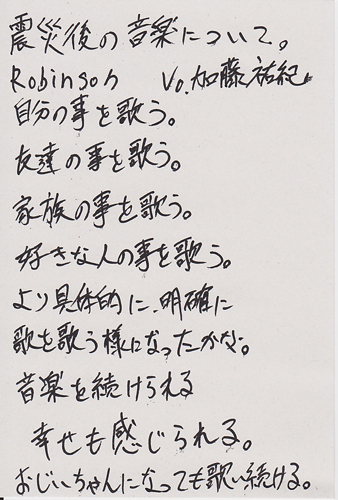 震災後の音楽について。
Robinson Vo.加藤祐紀
自分の事を歌う。
友達の事を歌う。
家族の事を歌う。
好きな人の事を歌う。
より具体的に、明確に
歌を歌う様になったかな。
音楽を続けられる
幸せも感じられる。
おじいちゃんになっても歌い続ける。